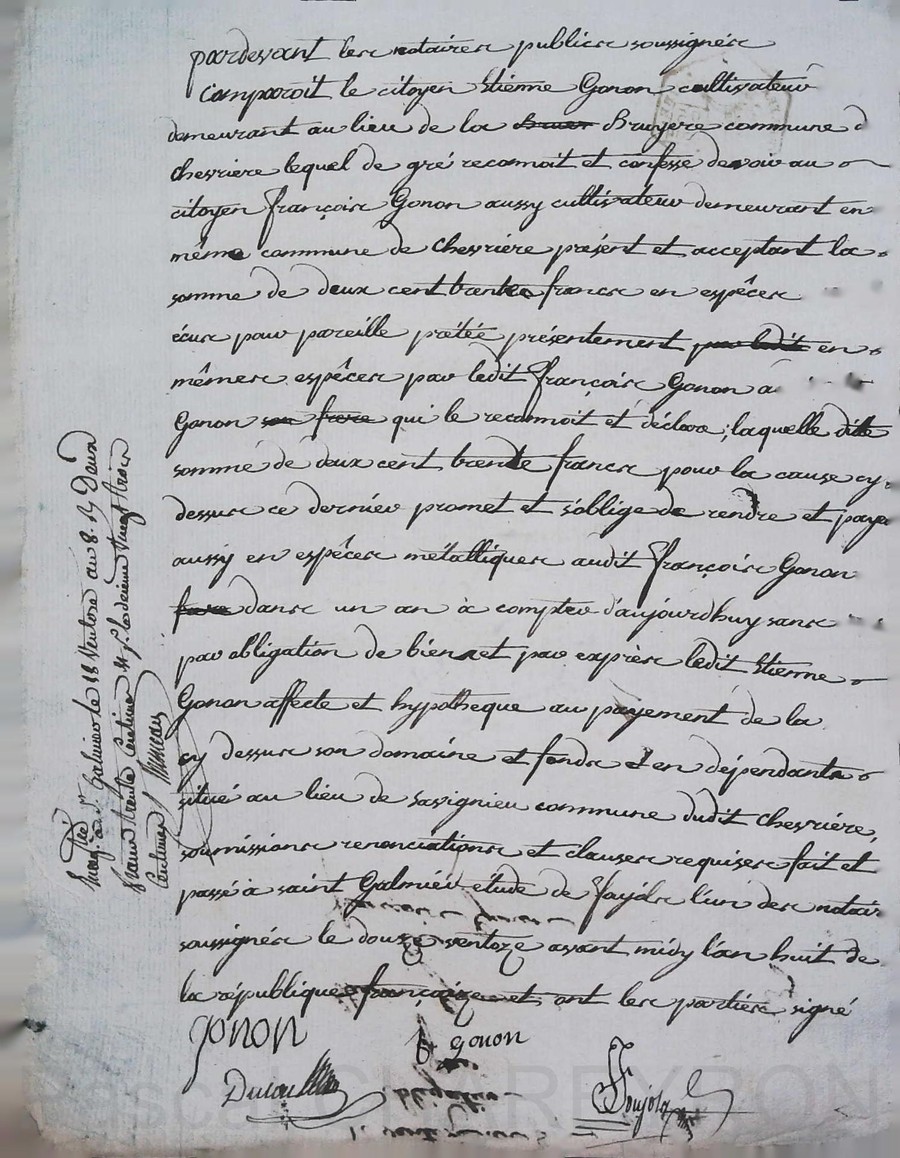 pardevant les notaires publics soussignés
comparoit le citoyen Etienne Gonon cultivateur
demeurant au lieu de la Bruyere commune d
chevriere lequel de gré reconnoit et confesse devoir au
citoyen françois Gonon aussy cultivateur demeurant en
même commune de chevriere présent et acceptant la
somme de deux cent trente francs en espêces
écus pour pareille prétée présentement par ledit en
mêmes espêces par ledit françois Gonon a
Gonon son frere qui le reconnoit et déclare ; laquelle ditte
somme de deux cent trente francs pour la cause cy
dessus ce dernier promet et s'oblige de rendre et paye
aussy en espêces métalliques audit françois Gonon
frere dans un an à compter d'aujourdhuy sans
par obligation de biens et par exprès ledit Etienne
Gonon affecte et hypotheque au payement de la
cy dessus son domaine et fonds et en dépendants
situé au lieu de savignieu commune dudit chevriére,
soumissions renonciations et clauses requises fait et
passé à saint Galmier étude de fayols l'un des notair
soussignés le douze ventoze avant midy l'an huit de
la république françoize et ont les parties signé
gonon
gonon
a St Galmier le 18 Ventose an 8. Ry Deux
francs trente Centimes
vingt trois
Centimes